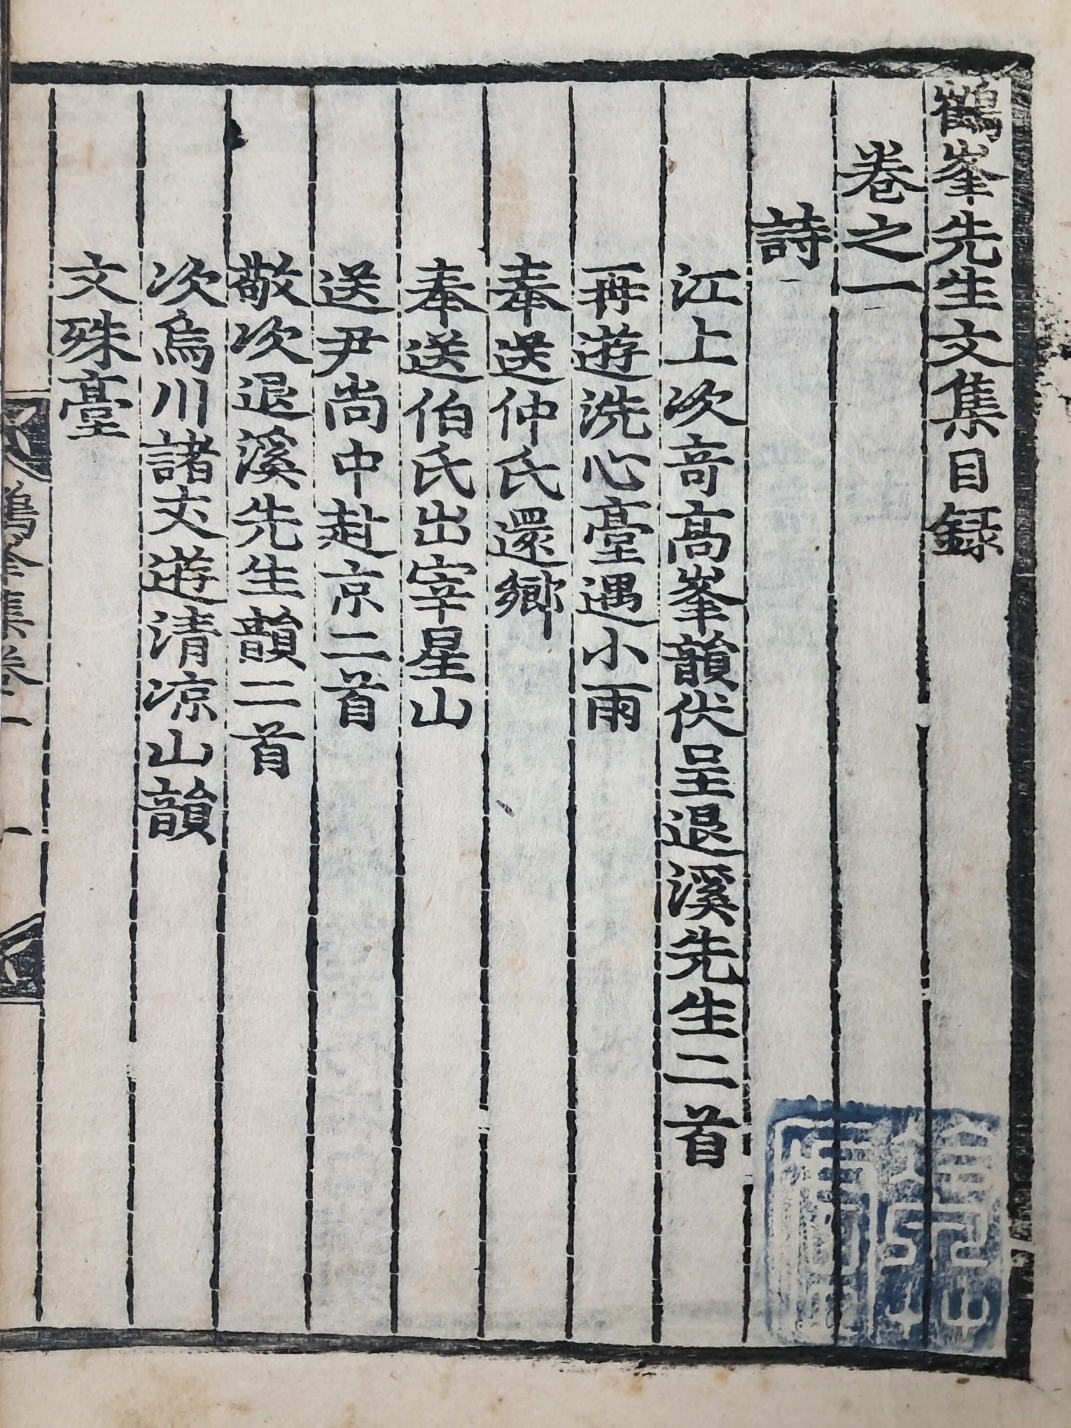 鶴峯先生文集目録
卷之一
詩
江上次竒高峯韻伏呈退溪先生二首
再遊洗心臺遇小雨
奉送仲氏還鄉
奉送伯氏出宰星山
送尹尚中赴京二首
敬次退溪先生韻二首
次烏川諸丈遊清凉山韻
文殊臺